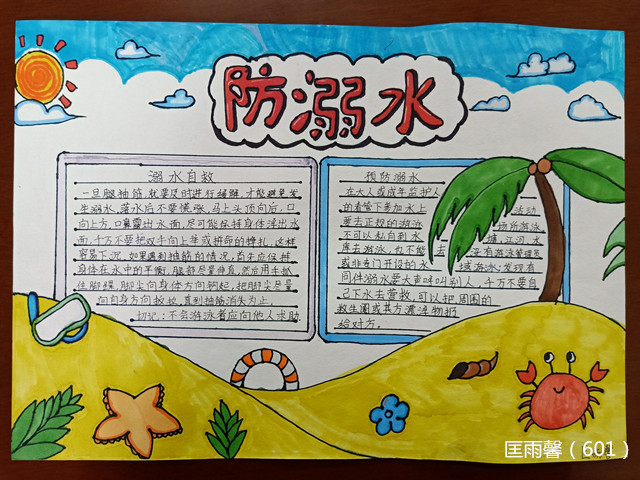 防溺水
溺水自救
一旦腿抽筋,就要及时进行缓解,才能避免发
生溺水。落水后不要慌张,马上头顶向后,口
向上方,口鼻露出水面,尽可能保持身体浮出水
面,千万不要把双手向上举或拼命的挣扎,这样
容易下沉。如果遇到抽筋的情况,首先应保持
身体在水中的平衡,腿部尽量伸直,然后用手抓
住脚踝,脚尖向身体方向钩起,把脚尖尽量
向身方向扳拉,直到抽筋消失为止。
切记:不会游泳者应向他人求助
预防溺水
在大人或成年监护人
的看管下参加水上活动
要去正规的游泳场所游泳
不可以私自到水塘、江河、水
库去游泳,也不能去没有游泳管理员
或非专门开设的水域游泳;发现有
同伴溺水要大声呼叫别人,千万不要自
己下水去营救,可以把周围的
救生圈或其方漂浮物扔
给对方。
匡雨馨(601)